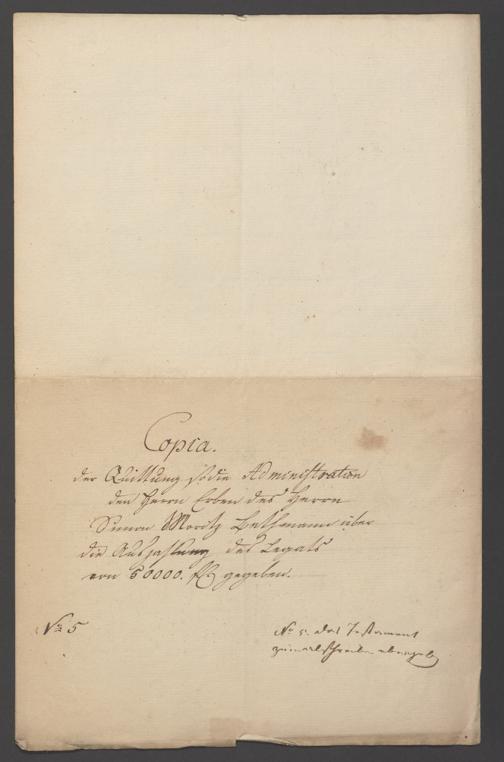 Copia.
der Quittung so die Administration
den Herrn Erben des Herrn
Simon Moritz Bethmann über
die Auszahlung des Legats
von 50000. f gegeben.
No 5
No 5. das Testament